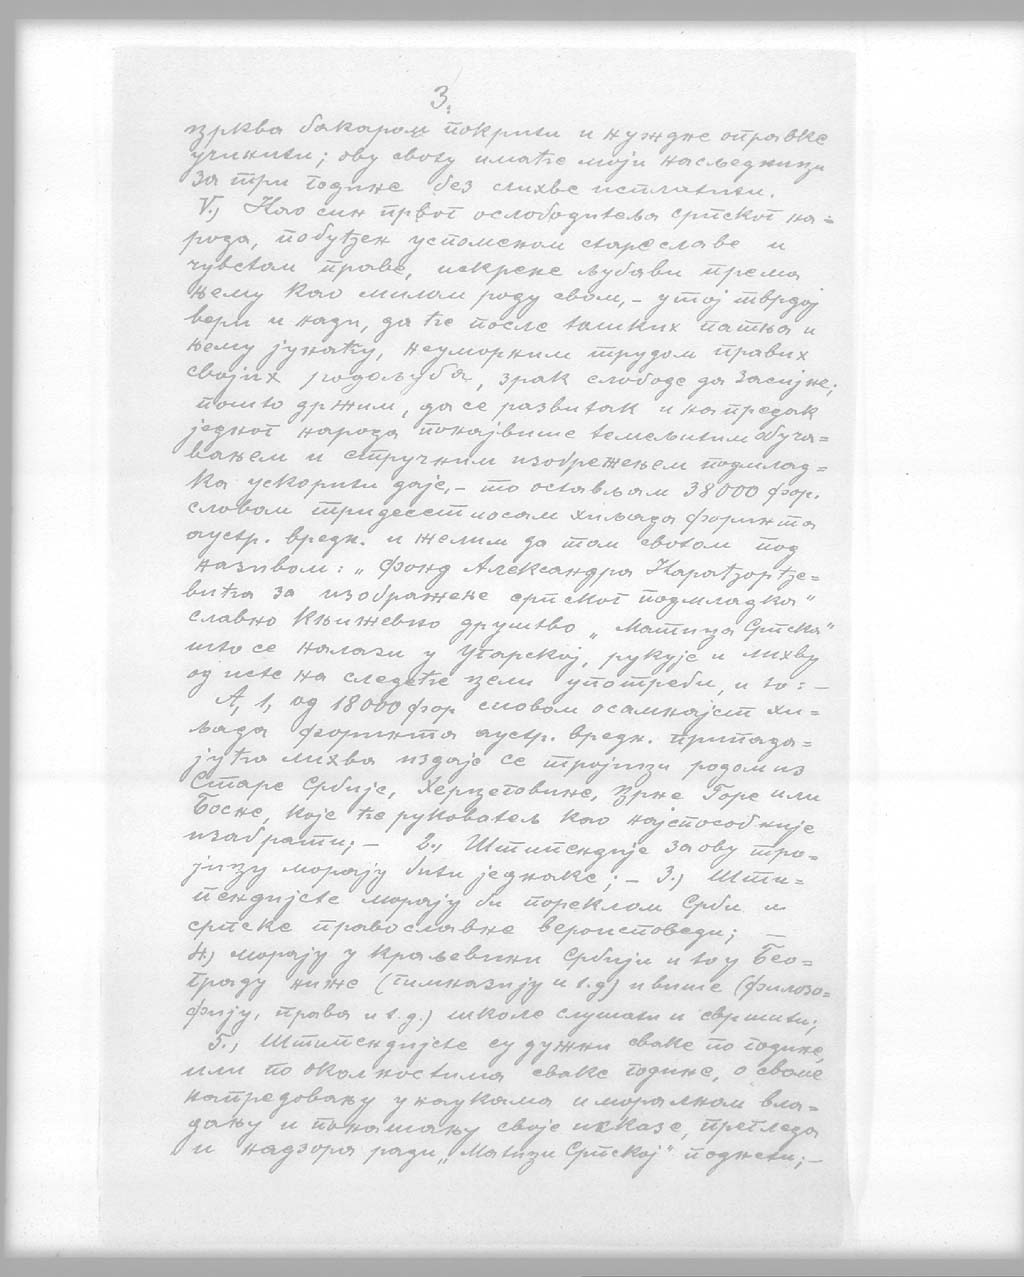 3.
црква бакаром покрити и нуждне оправке
учинити; ову своту имаће моји насљедници
за три године без лихве исплатити.
V.) Као син првог ослободитеља српског на=
рода, побуђен успоменом старе славе и
чувством праве, искрене љубави према
њему као милом роду свом, – у тој тврдој
вери и нади, да ће после тешких патња и
њему јунаћу, неуморним трудом правих
својих родољуба, зрак слободе да засијне;
пошто држим, да се развитак и напредак
једног народа понајвише темељитим обуча=
вањем и стручним изображењем подмлад=
ка ускорити даје, – то остављам 38000 фор.
словом тридесет и осам хиљада форинта
аустр. вредн. и желим да том свотом под
називом: „Фонд Александра Карађорђе=
вића за изображење српског подмладка"
славно књижевно друштво „Матица Српска"
што се налази у Угарској, рукује и лихву
од исте на следеће цели употреби, и то: –
А, 1, од 18000 фор словом осамнајст хи=
љада форинта аустр. вредн. припада=
јућа лихва издаје се тројици родом из
Старе Србије, Херцеговине, Црне Горе или
Босне, које ће руковатељ као најспособније
изабрати; – 2., Штипендије за ову тро=
јицу морају бити једнаке; – 3.) Шти=
пендијсте морају би пореклом Срби и
српске православне вероисповеди; –
4.) морају у краљевини Србији и то у Бео=
граду ниже (гимназију и т.д) и више (филозо=
фију, права и т.д.) школе слушати и свршити;
5., Штипендијсте су дужни сваке по године,
или по околностима сваке године, о своме
напредовању у наукама и моралном вла=
дању и понашању своје исказе, прегледа
и надзора ради „Матици Српској" поднети; –